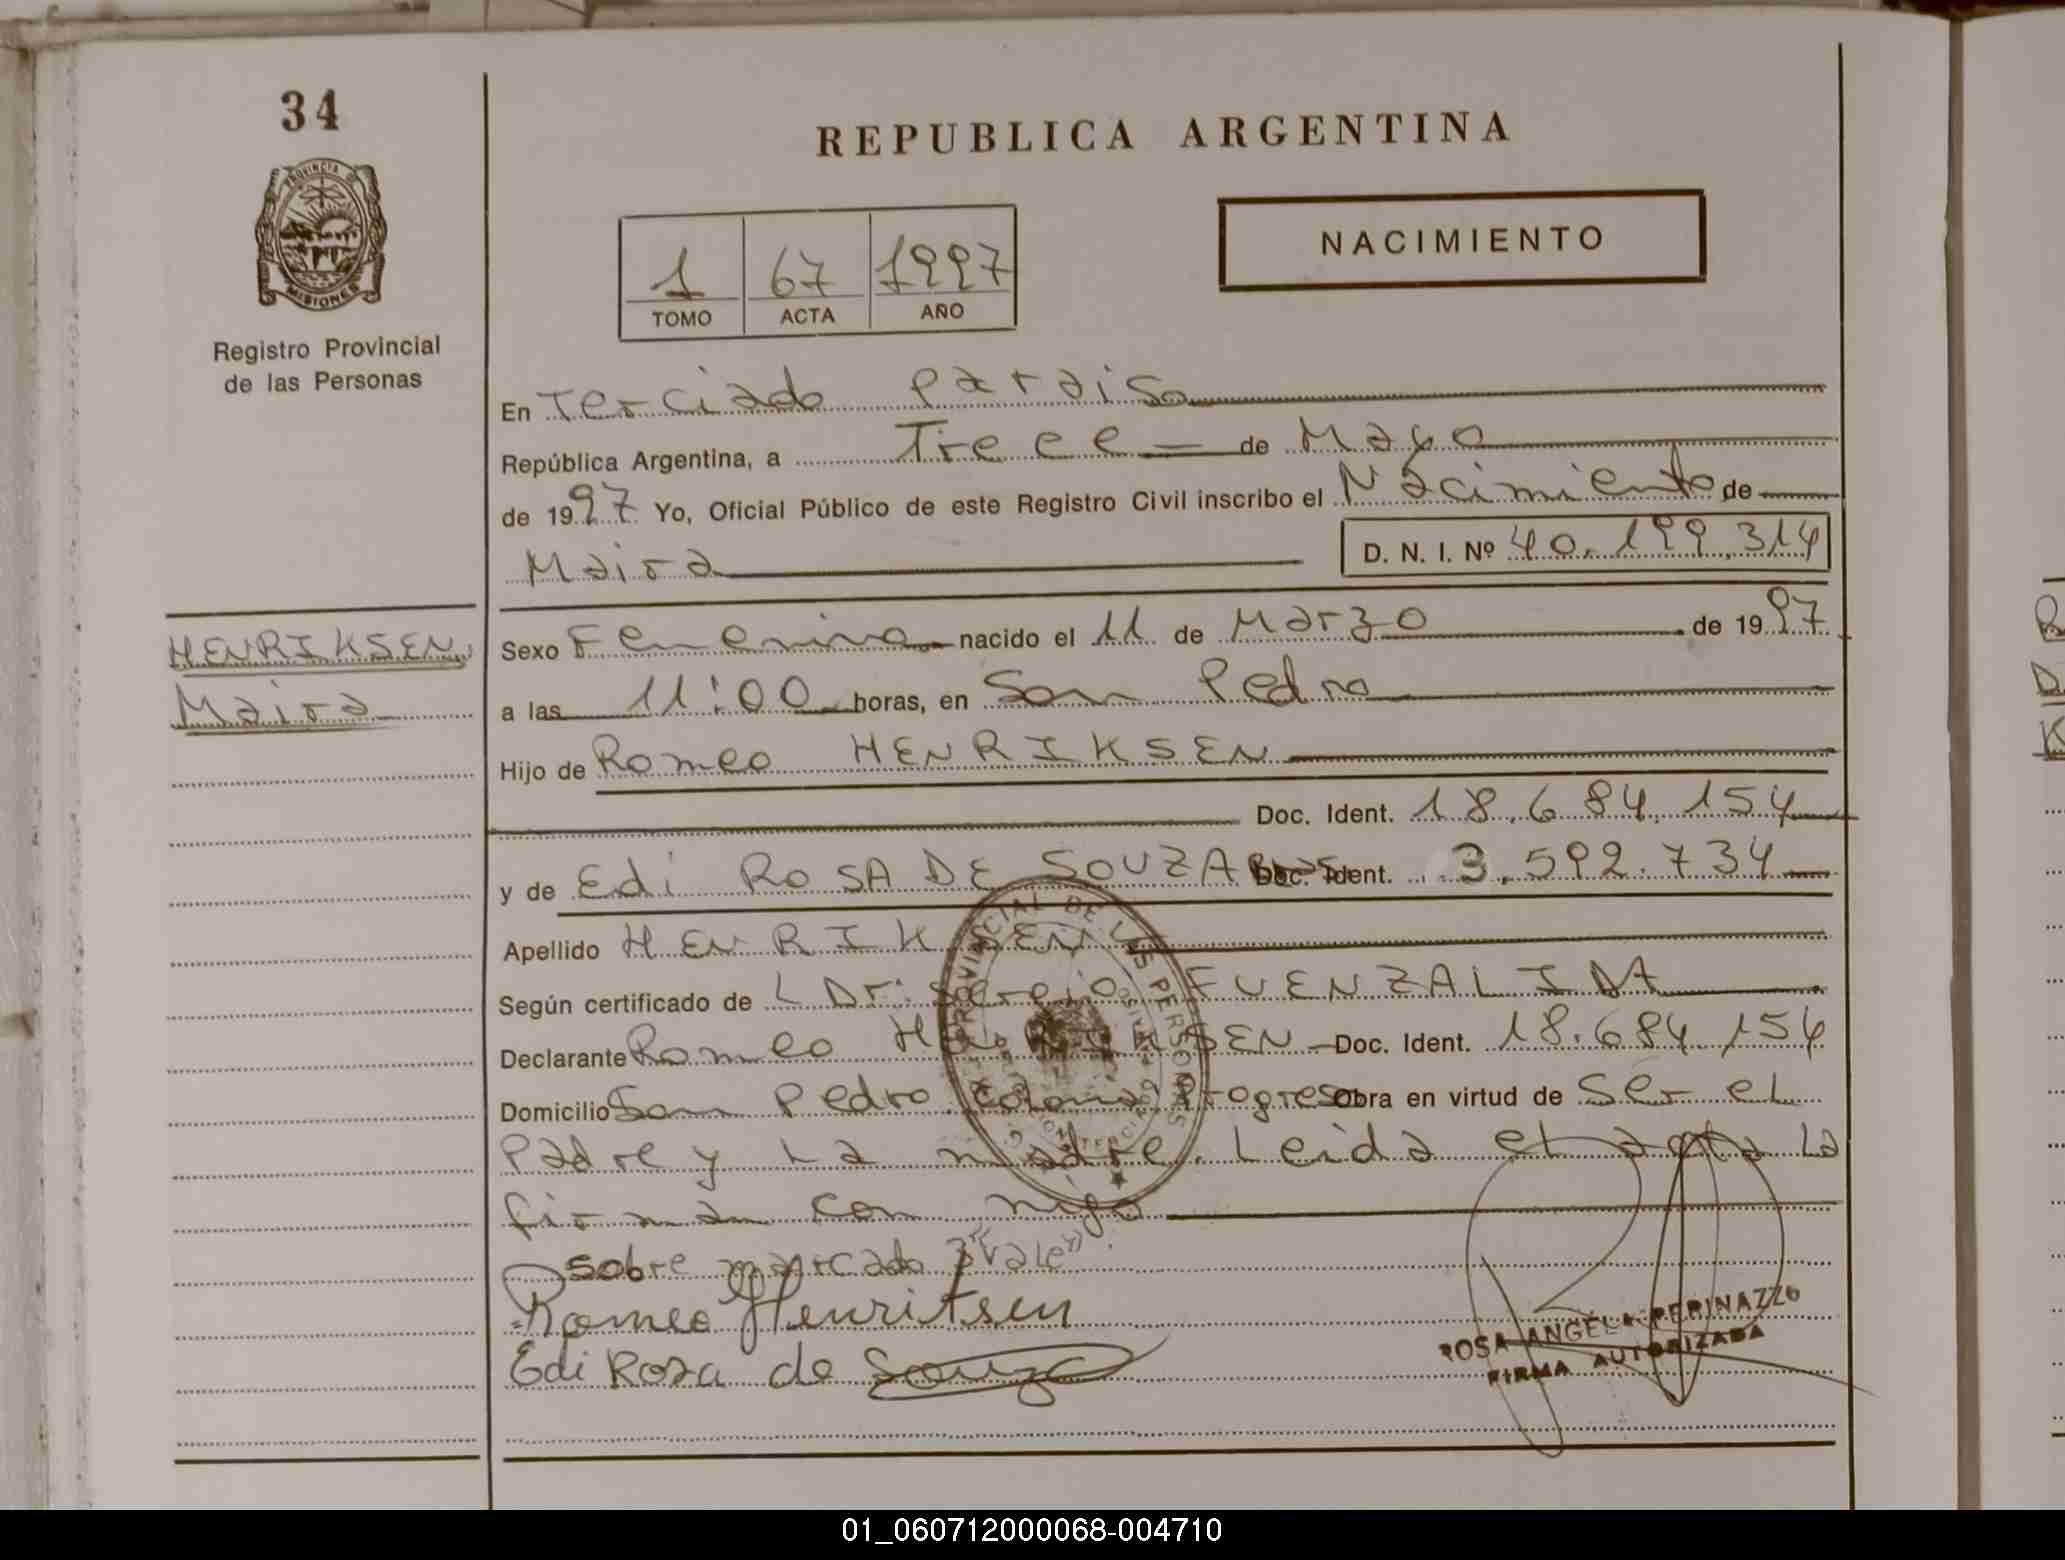 34
REPUBLICA ARGENTINA
PROVINCIA DE
MISIONES
Registro Provincial
de las Personas
1 67 1997
TOMO ACTA AÑO
NACIMIENTO
En Terciado Paraiso
República Argentina, a Trece de Mayo
de 1997 Yo, Oficial Público de este Registro Civil inscribo el Nacimiento de
Maira D. N. I. Nº 40.199.314
HENRIKSEN
Maira
Sexo Femenino nacido el 11 de Marzo de 1997
a las 11:00 horas, en San Pedro
Hijo de Romeo HENRIKSEN
Doc. Ident. 18.684.154
y de Edi ROSA DE SOUZA Doc. Ident. 3.592.734
Apellido HENRIKSEN
Según certificado de L Dr: Sergio FUENZALIDA
Declarante Romeo HENRIKSEN Doc. Ident. 18.684.154
Domicilio San Pedro Colonia Progreso Obra en virtud de Ser el
Padre y La madre. Leida el acta La
firman con migo
sobre marcado 3 "vale".
Romeo Henriksen
Edi Rosa de Souza
ROSA ANGELA PERINAZZO
FIRMA AUTORIZADA
01_060712000068-004710